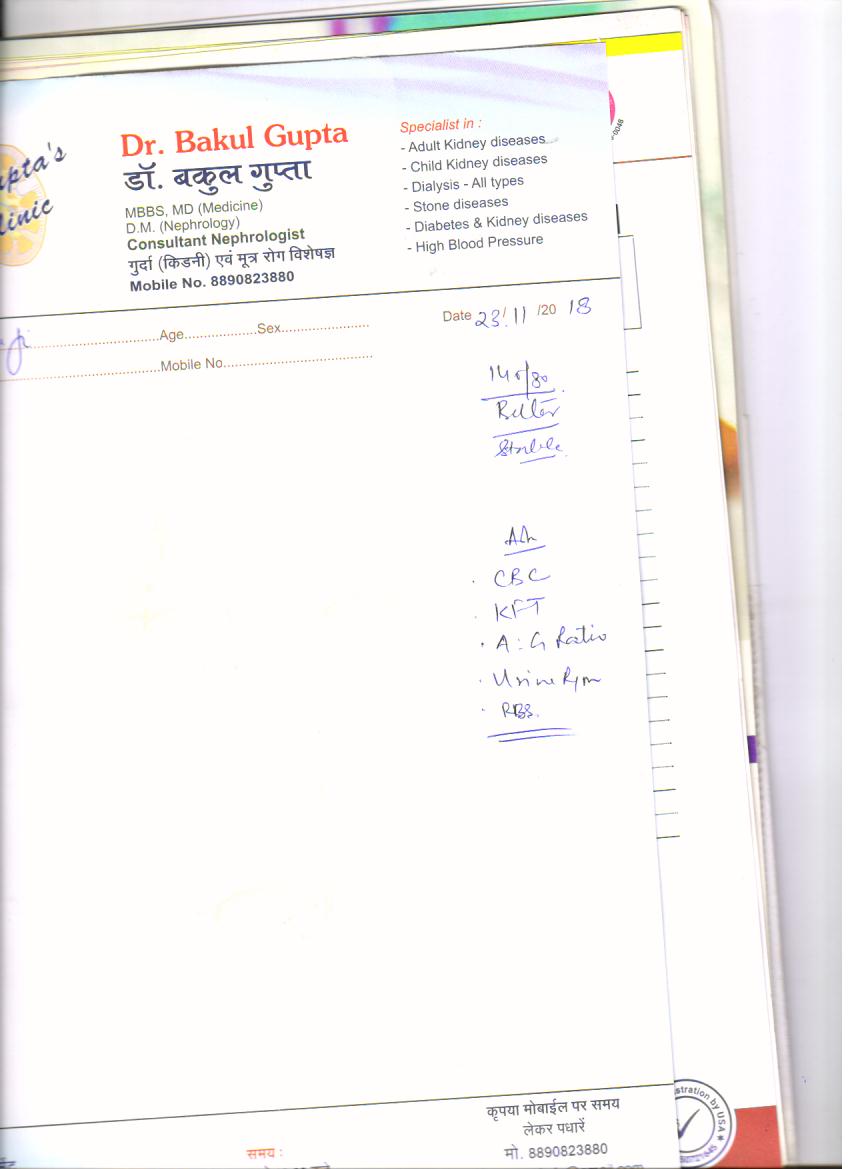 Dr. Bakul Gupta
डॉ. बकुल गुप्ता
MBBS, MD (Medicine)
D.M. (Nephrology)
Consultant Nephrologist
गुर्दा (किडनी) एवं मूत्र रोग विशेषज्ञ
Mobile No. 8890823880
Specialist in :
- Adult Kidney diseases
- Child Kidney diseases
- Dialysis - All types
- Stone diseases
- Diabetes & Kidney diseases
- High Blood Pressure
pta's
linic
Age..................Sex......................
Date 23/11/2018
Mobile No.....................................
140/80
Better
Stable
CBC
KFT
A:G Ratio
Urine
RBS.
कृपया मोबाईल पर समय
लेकर पधारें
मो. 8890823880
समय :
stration by USA